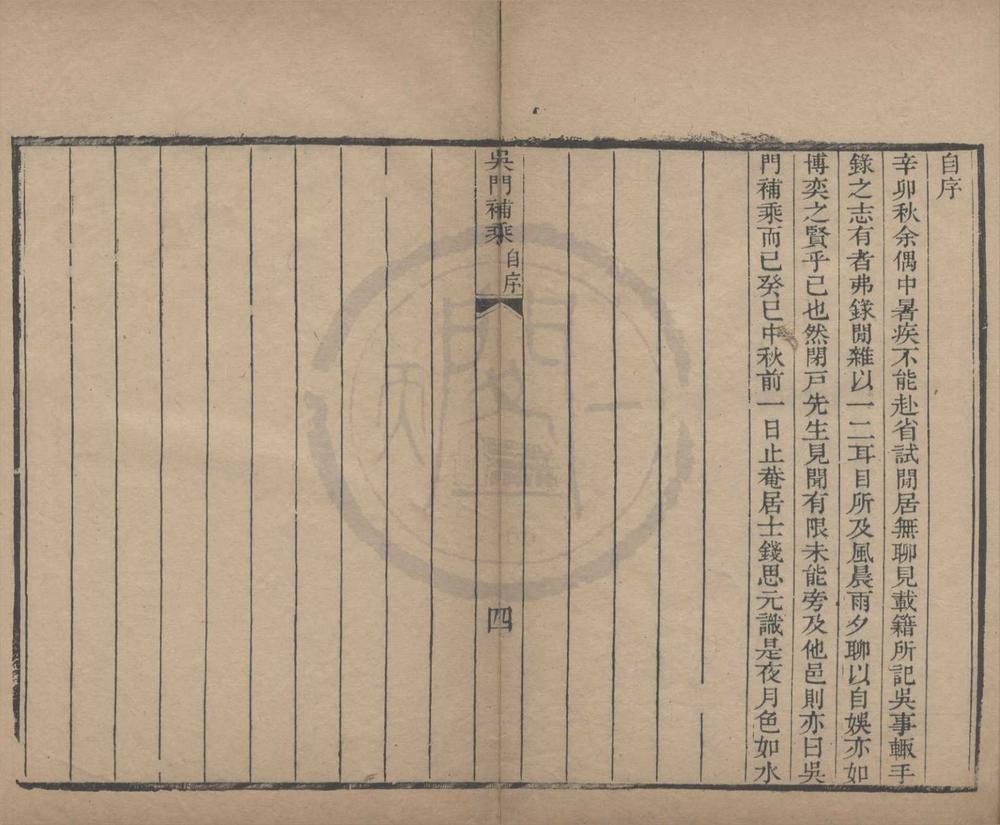 自序
辛卯秋余偶中暑疾不能赴省試閒居無聊見載籍所記吳事輒手
錄之志有者弗錄閒雜以一二耳目所及風晨雨夕聊以自娛亦如
博奕之賢乎已也然閉戸先生見聞有限未能旁及他邑則亦曰吳
門補乘而已癸巳中秋前一日止菴居士錢思元識是夜月色如水
吳門補乘
自序
四